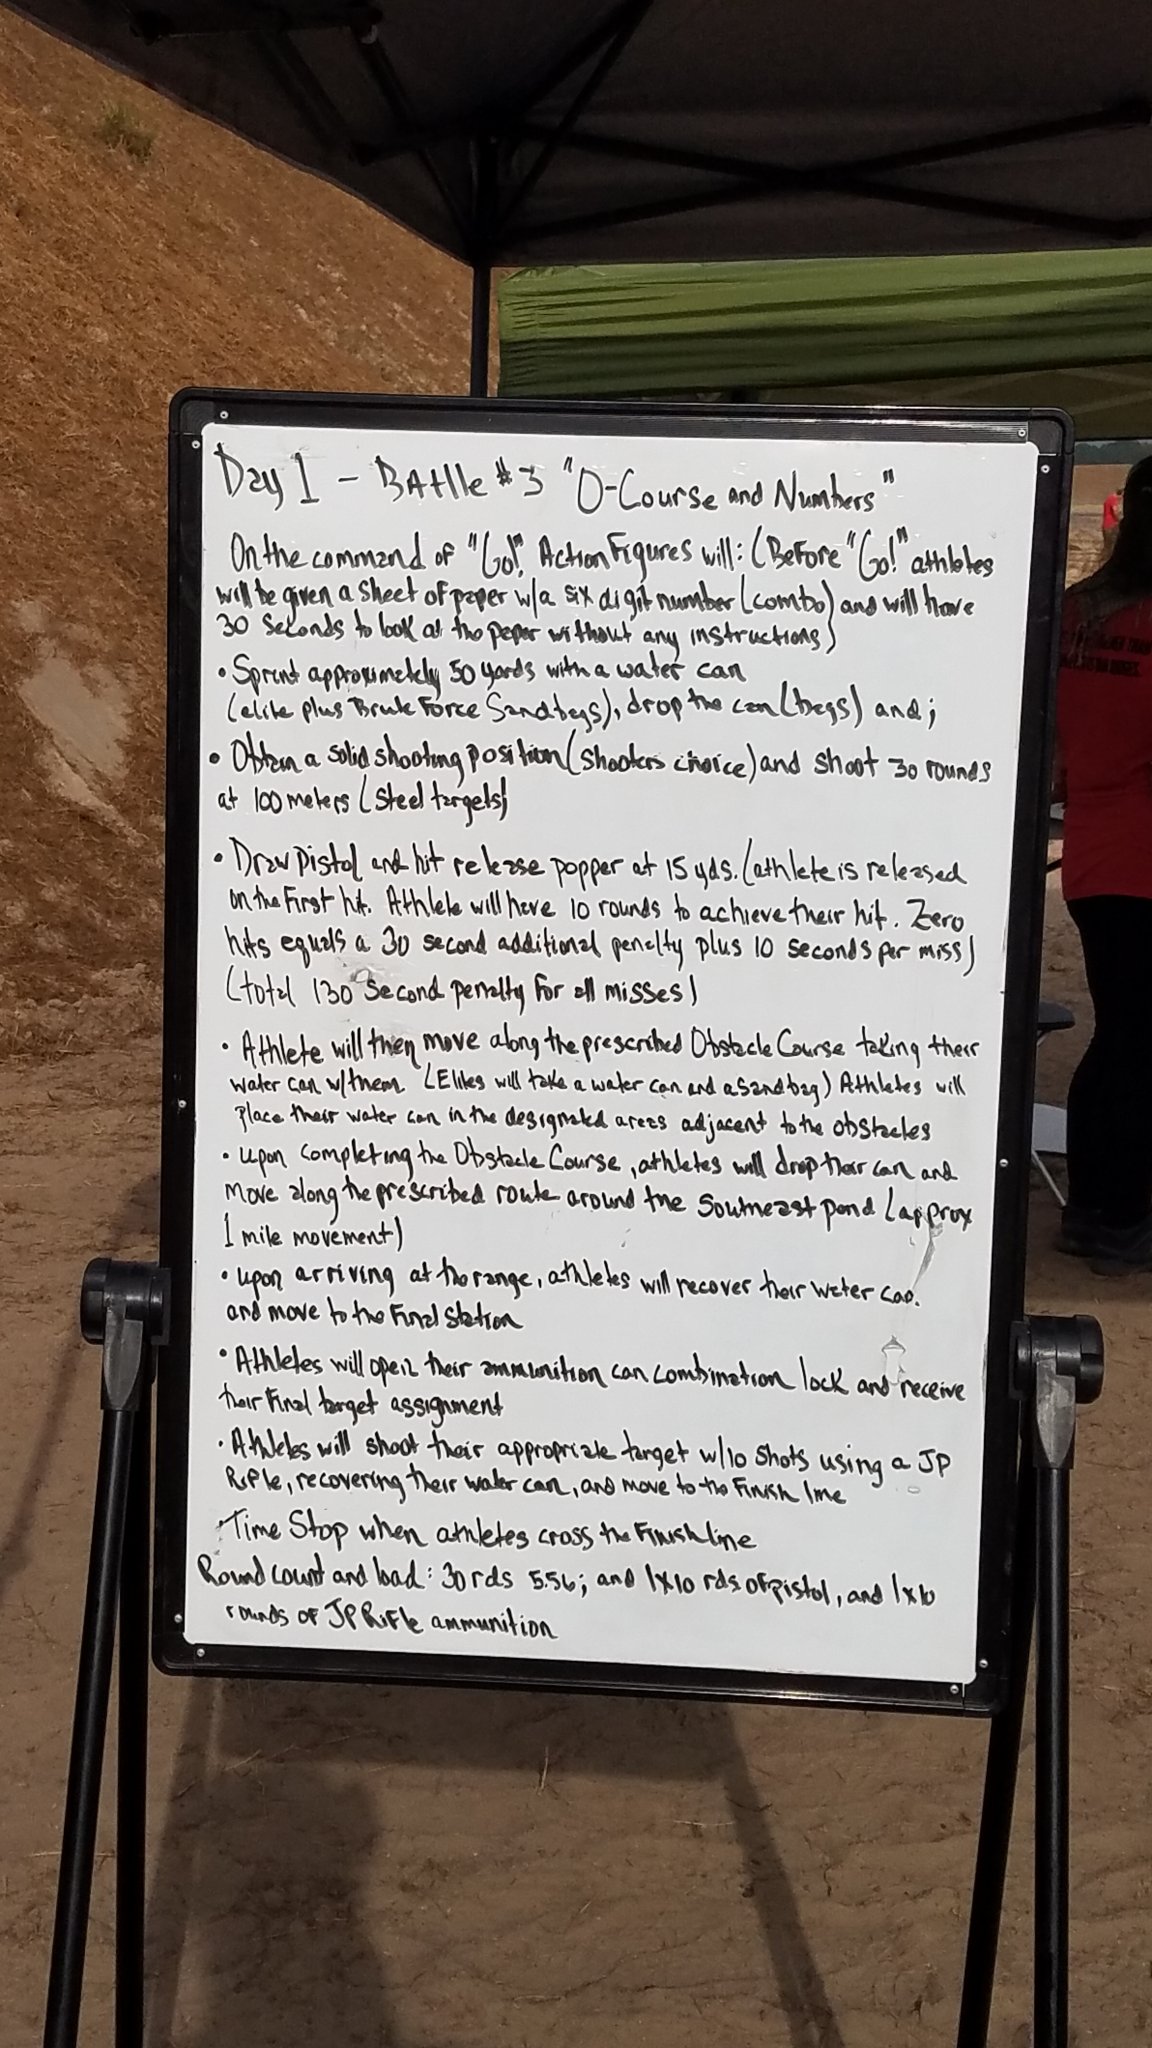 Day 1 - BAttle #3 "O-Course and Numbers"
On the command of "Go!", Action Figures will: (Before "Go!" athletes
will be given a sheet of paper w/a six digit number (combo) and will have
30 seconds to look at the paper without any instructions)
• Sprint approximately 50 yards with a water can
(elite plus Brute Force Sandbags), drop the can (bags) and;
• Obtain a solid shooting position (shooters choice) and shoot 30 rounds
at 100 meters (steel targets)
• Draw Pistol and hit release popper at 15 yds. (athlete is released
on the First hit. Athlete will have 10 rounds to achieve their hit. Zero
hits equals a 30 second additional penalty plus 10 seconds per miss)
(total 130 second penalty for all misses)
• Athlete will then move along the prescribed Obstacle Course taking their
water can w/them. (Elites will take a water can and a sandbag) Athletes will
place their water can in the designated areas adjacent to the obstacles
• upon completing the Obstacle Course, athletes will drop their can and
move along the prescribed route around the Southeast pond (approx
1 mile movement)
• upon arriving at the range, athletes will recover their water can.
and move to the Final Station
• Athletes will open their ammunition can combination lock and receive
their Final target assignment
• Athletes will shoot their appropriate target w/10 shots using a JP
Rifle, recovering their water can, and move to the Finish line
• Time Stop when athletes cross the Finish line
Round count and load: 30 rds 5.56; and 1x10 rds of pistol, and 1x10
rounds of JP Rifle ammunition